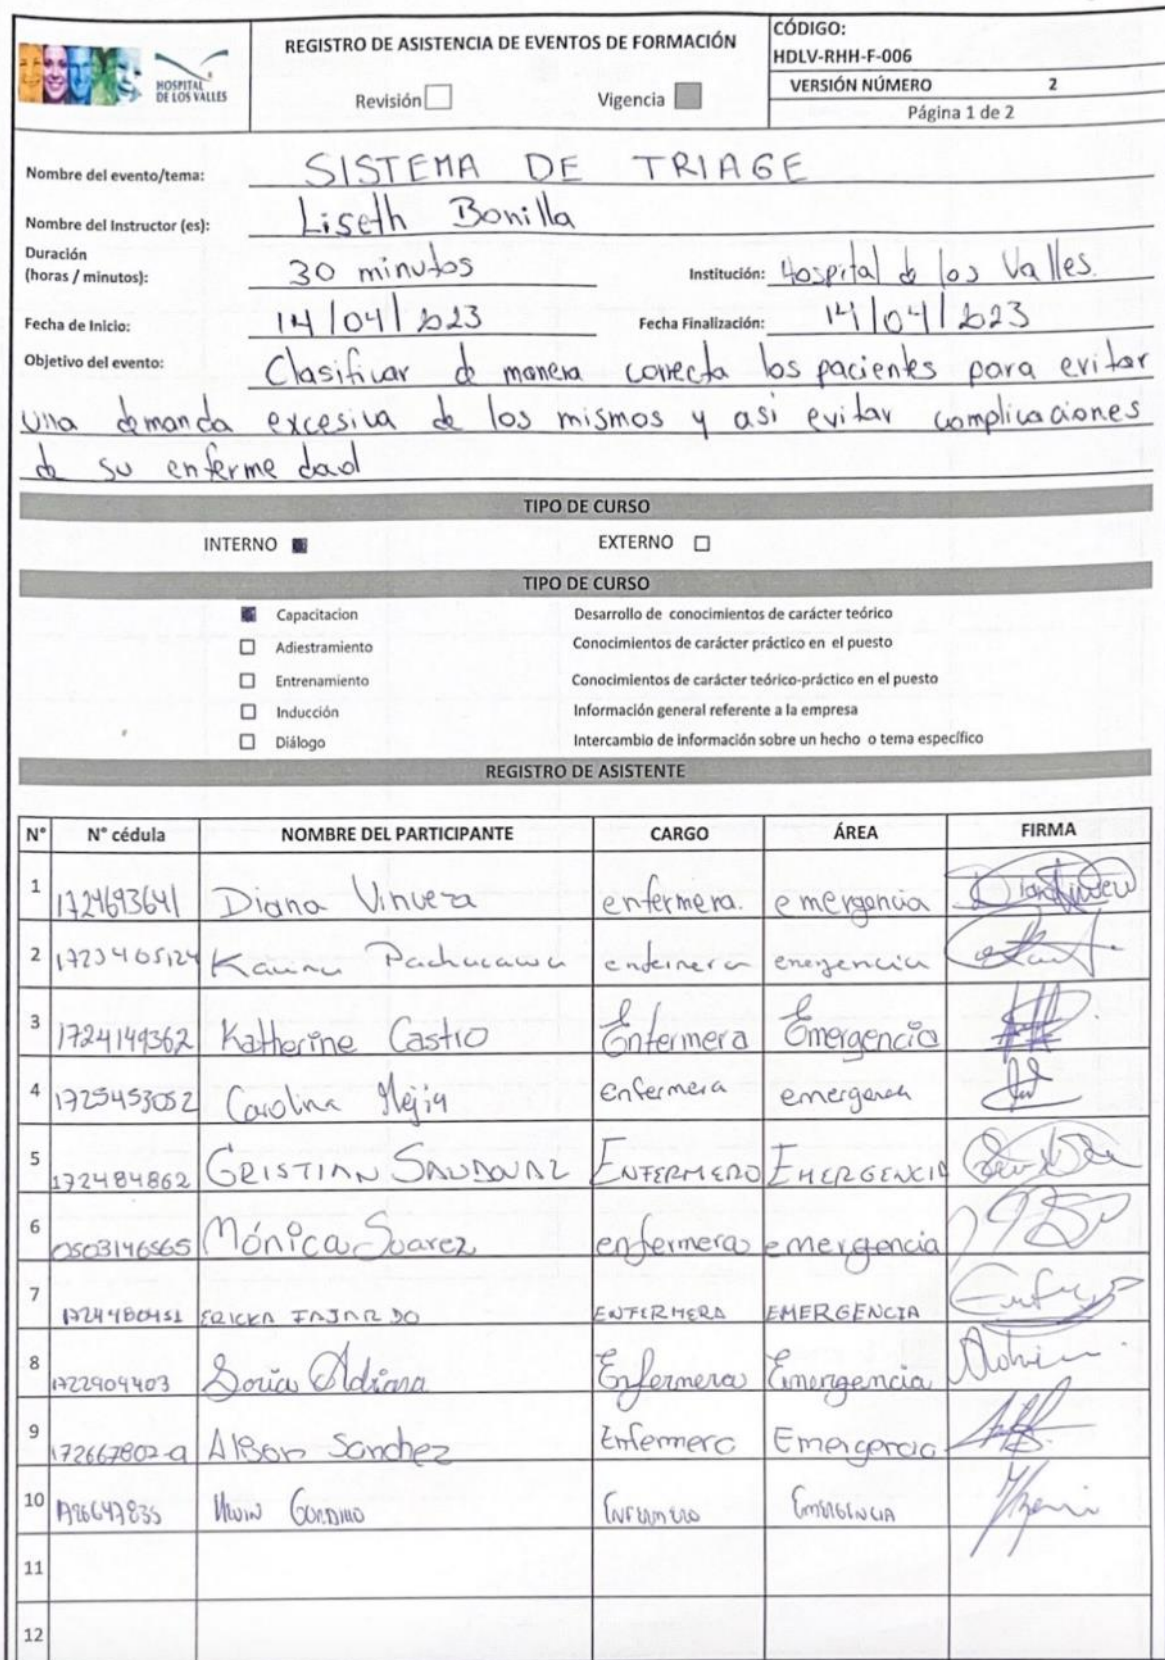 HOSPITAL
DE LOS VALLES
REGISTRO DE ASISTENCIA DE EVENTOS DE FORMACIÓN
Revisión Vigencia
CÓDIGO:
HDLV-RHH-F-006
VERSIÓN NÚMERO 2
Página 1 de 2
Nombre del evento/tema: SISTEMA DE TRIAGE
Nombre del Instructor (es): Liseth Bonilla
Duración
(horas / minutos): 30 minutos Institución: Hospital de los Valles.
Fecha de Inicio: 14/04/2023 Fecha Finalización: 14/04/2023
Objetivo del evento: Clasificar de manera correcta los pacientes para evitar
una demanda excesiva de los mismos y asi evitar complicaciones
de su enfermedad
TIPO DE CURSO
INTERNO EXTERNO
TIPO DE CURSO
Capacitacion Desarrollo de conocimientos de carácter teórico
Adiestramiento Conocimientos de carácter práctico en el puesto
Entrenamiento Conocimientos de carácter teórico-práctico en el puesto
Inducción Información general referente a la empresa
Diálogo Intercambio de información sobre un hecho o tema específico
REGISTRO DE ASISTENTE
N° N° cédula NOMBRE DEL PARTICIPANTE CARGO ÁREA FIRMA
1 1724693641 Diana Vinueza enfermera. emergencia
2 1723405124 Karina enfermera emergencia
3 1724149362 Katherine Castro Enfermera Emergencia
4 1725453052 Carolina Mejia enfermera emergencia
5 172484862 CRISTIAN SANDOVAL ENFERMERO EMERGENCIA
6 0503146565 Mónica Suarez enfermera emergencia
7 1724480451 ERICKA FAJARDO ENFERMERA EMERGENCIA
8 1722909403 Soria Adriana Enfermera Emergencia
9 172667802-9 Alison Sanchez Enfermera Emergencia
10 ENFERMERO EMERGENCIA
11
12